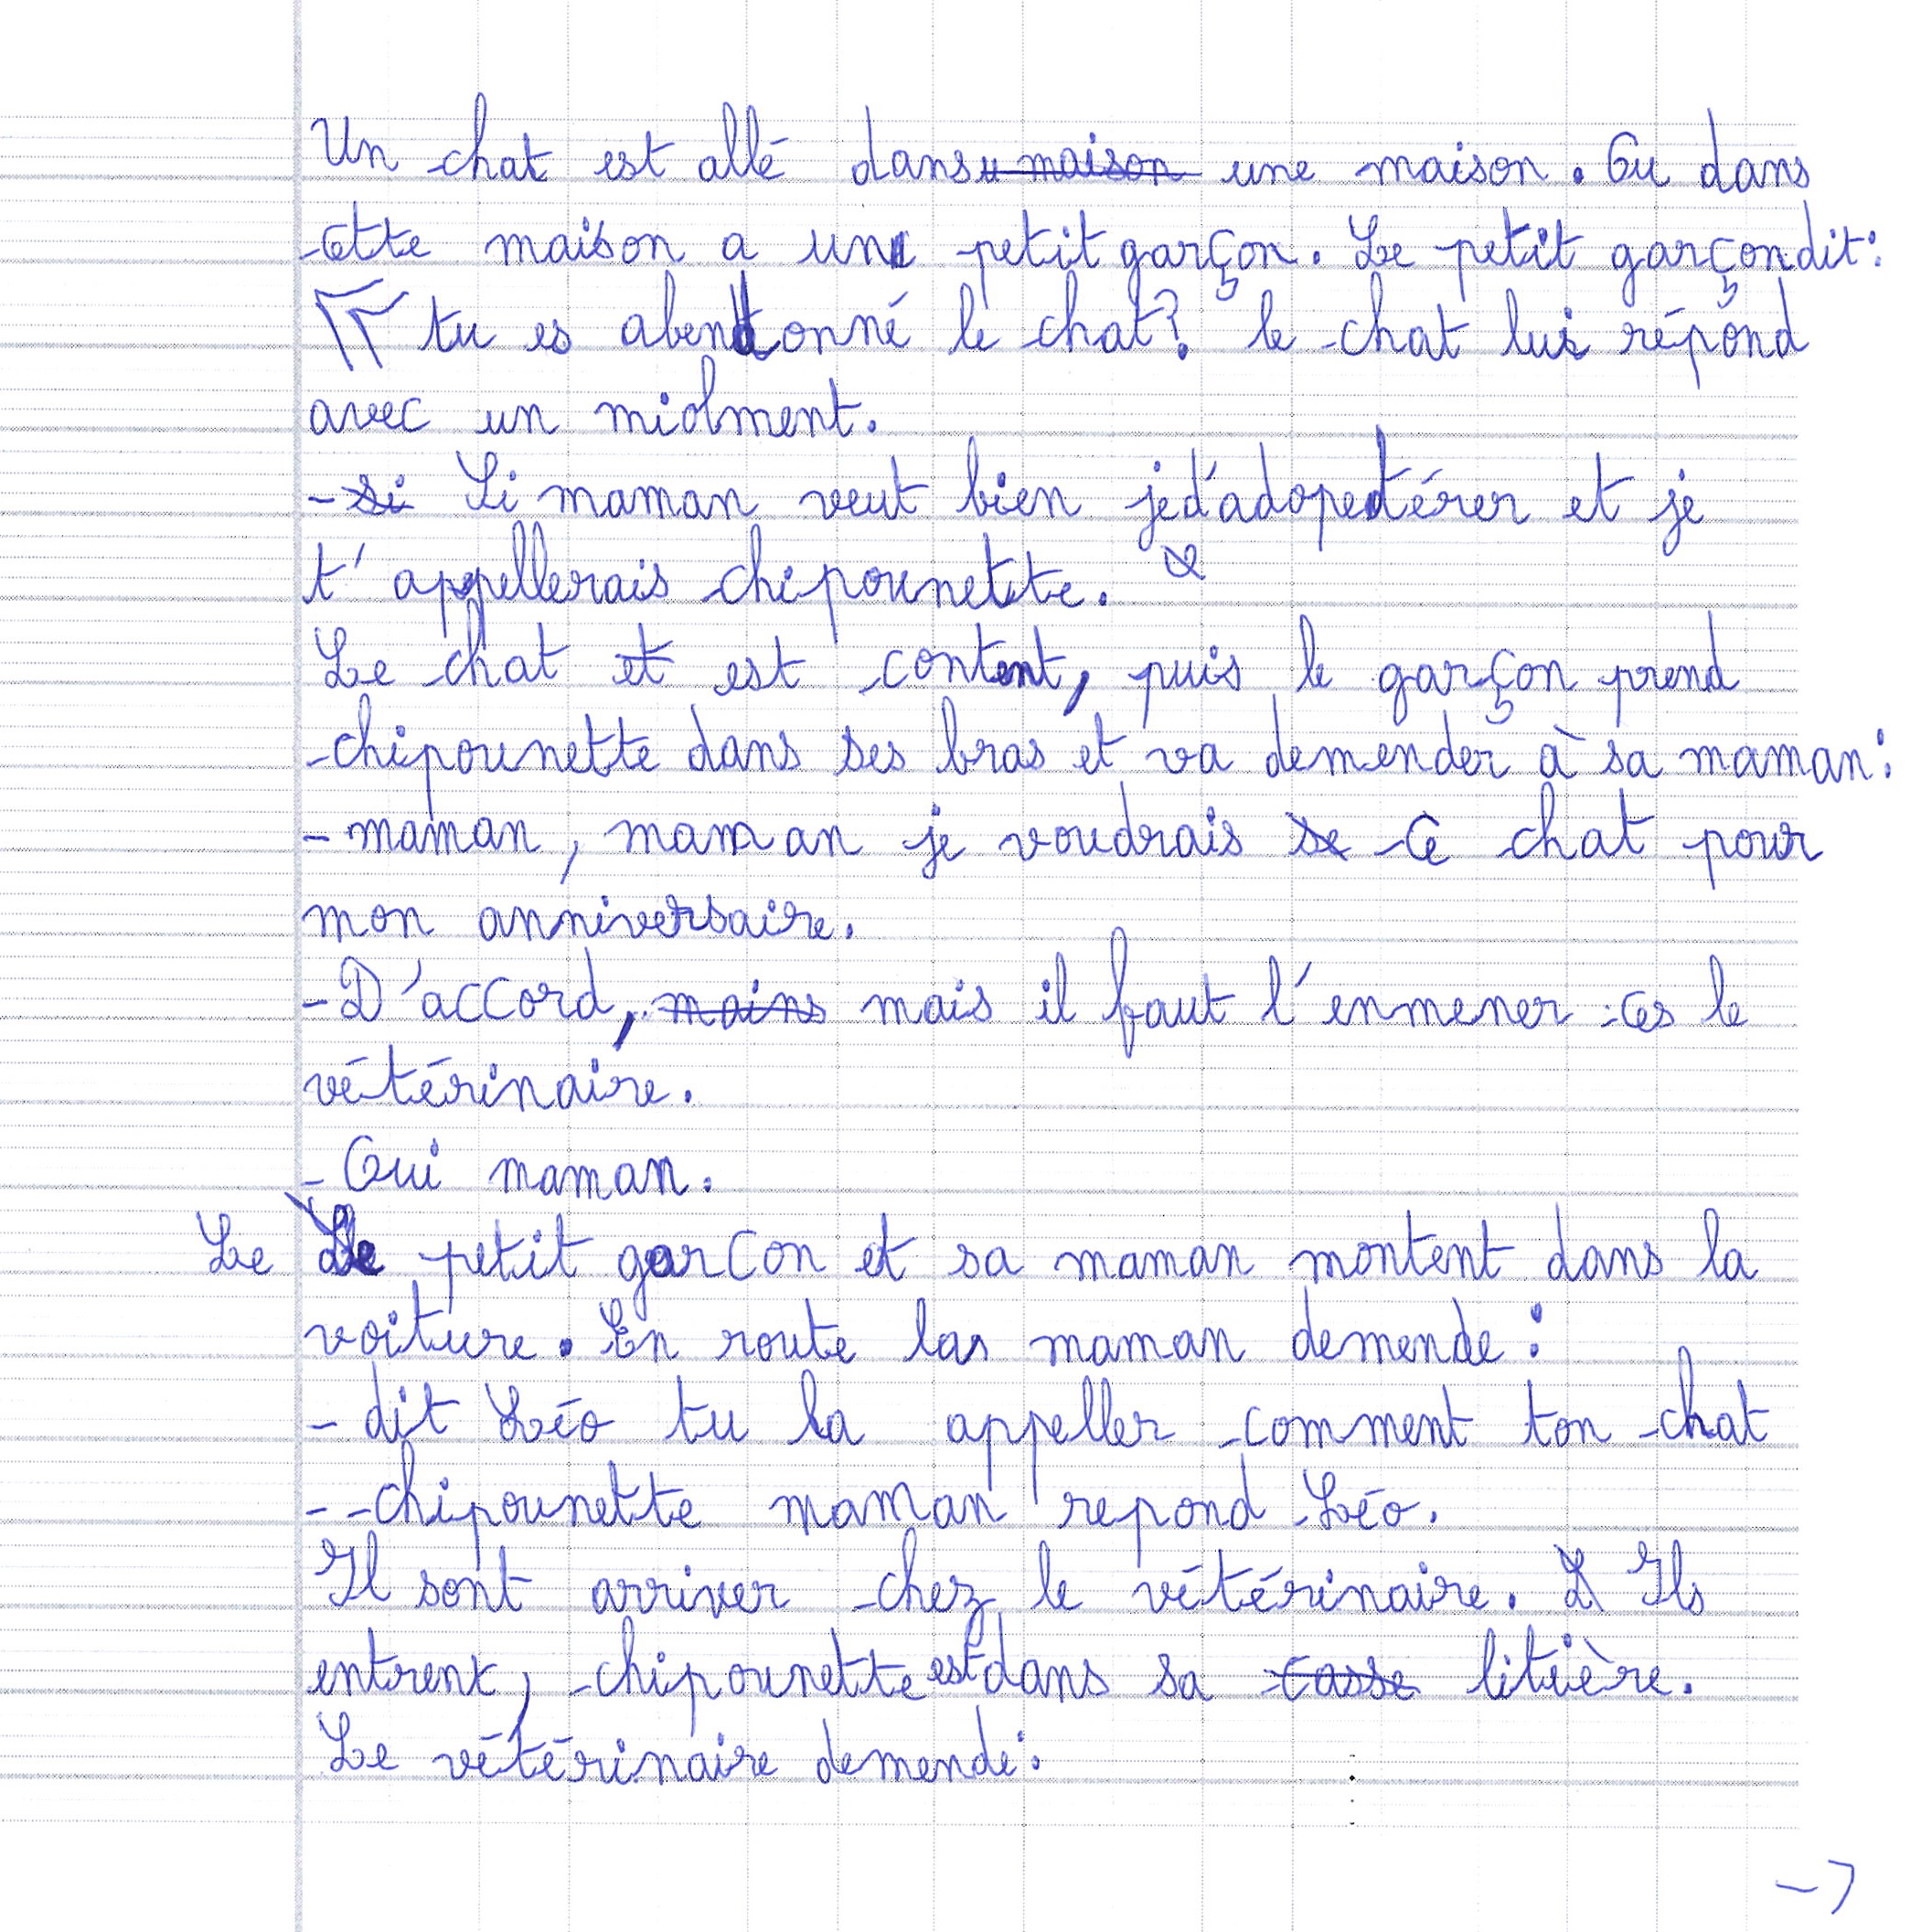 Un chat est allé dans u maison une maison. Ou dans
cette maison a un petit garçon. Le petit garçon dit:
tu es abendonné le chat? le chat lui répond
avec un miolment.
- si Si maman veut bien je d'adopedtérer et je
t'appellerais chipounette.
Le chat et est content, puis le garçon prend
chipounette dans ses bras et va demender à sa maman:
- maman, maman je voudrais se ce chat pour
mon anniversaire.
- D'accord, mains mais il faut l'enmener ces le
vétérinaire.
- Oui maman.
Le Le petit garcon et sa maman montent dans la
voiture. En route las maman demende:
- dit Léo tu la appeller comment ton chat
- chipounette maman repond Léo.
Il sont arriver chez le vétérinaire. I Ils
entrent, chipounette est dans sa casse litière.
Le vétérinaire demende:
->